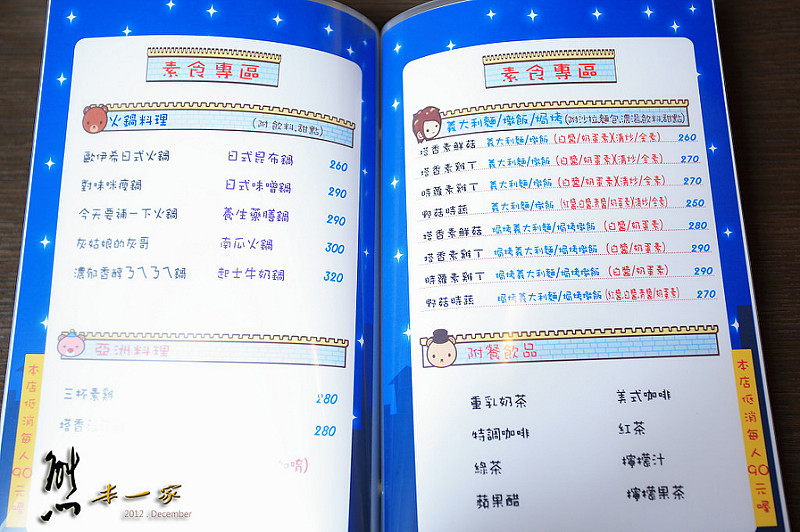 素食專區
火鍋料理 (附 飲料.甜點)
歐伊希日式火鍋 日式昆布鍋 260
對味咪瘦鍋 日式味噌鍋 290
今天要補一下火鍋 養生藥膳鍋 290
灰姑娘的灰哥 南瓜火鍋 300
濃郁香醇ㄋㄟㄋㄟ鍋 起士牛奶鍋 320
亞洲料理
三杯素雞 280
塔香 280
本店低消每人90元喔
素食專區
義大利麵/燉飯/焗烤(附沙拉.麵包.濃湯.飲料.甜點)
塔香素鮮菇 義大利麵/燉飯 (白醬/奶蛋素)(清炒/全素) 260
塔香素雞丁 義大利麵/燉飯 (白醬/奶蛋素)(清炒/全素) 270
時蘿素雞丁 義大利麵/燉飯 (白醬/奶蛋素)(清炒/全素) 270
野菇時蔬 義大利麵/燉飯 (紅醬.白醬.青醬/奶蛋素)(清炒/全素) 250
塔香素鮮菇 焗烤義大利麵/焗烤燉飯 (白醬/奶蛋素) 280
塔香素雞丁 焗烤義大利麵/焗烤燉飯 (白醬/奶蛋素) 290
時蘿素雞丁 焗烤義大利麵/焗烤燉飯 (白醬/奶蛋素) 290
野菇時蔬 焗烤義大利麵/焗烤燉飯 (紅醬.白醬.青醬/奶蛋素) 270
附餐飲品
重乳奶茶 美式咖啡
特調咖啡 紅茶
綠茶 檸檬汁
蘋果醋 檸檬果茶
本店低消每人90元喔
熊 本一家
2012 . December